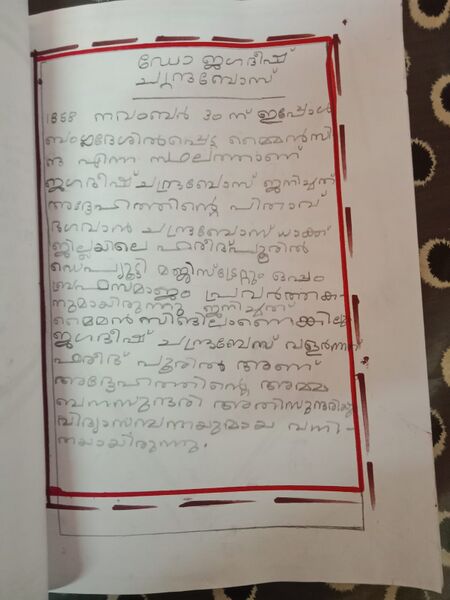 ഡോ ജഗദീഷ്
ചന്ദ്രബോസ്
1858 നവംബർ 30 ന് ഇപ്പോൾ
ബംഗ്ലദേശിൽപ്പെട്ട മൈമൻസി
ങ്ങ് എന്ന സ്ഥലത്താണ്
ജഗദീഷ് ചന്ദ്രബോസ് ജനിച്ചത്
അദ്ദേഹത്തിന്റെ പിതാവ്
ഭഗവാൻ ചന്ദ്രബോസ് ധാക്ക
ജില്ലയിലെ ഫരീദ്പൂരിൽ
ഡെപ്യൂട്ടി മജിസ്ട്രേറ്റും ഒപ്പം
ബ്രഹ്മസമാജം പ്രവർത്തക
നുമായിരുന്നു ജനിച്ചത്
മൈമൻസിങിലാണെങ്കിലും
ജഗദീഷ് ചന്ദ്രബോസ് വളർന്നത്
ഫരീദ് പൂരിൽ ആണ്
അദ്ദേഹത്തിന്റെ അമ്മ
ബനസുന്ദരി അതിസുന്ദരിയും
വിദ്യാസമ്പന്നയുമായ വനി
തയായിരുന്നു.